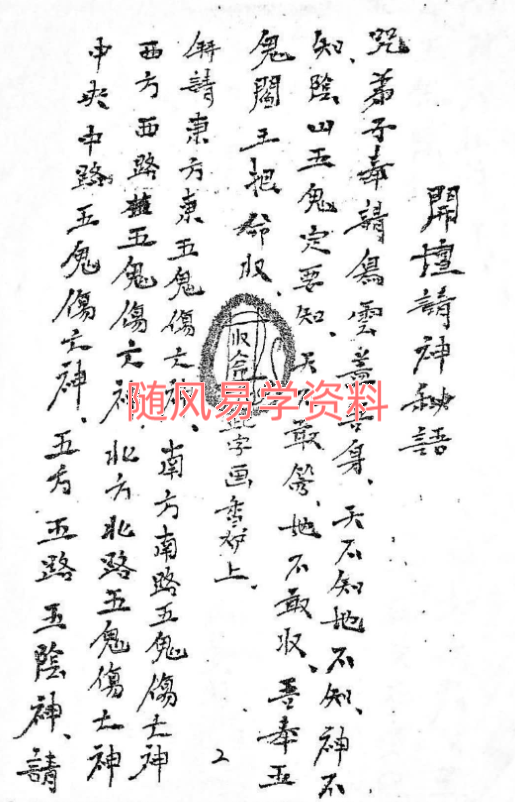 開壇請神秘語
咒 弟子奉請烏雲蓋吾身、天不知地不知、神不
知、陰山五鬼定要知、天不敢答、地不敢收、吾奉五
鬼閻王把命收、
收 字画香炉上、
奉請東方東五鬼傷亡神、南方南路五鬼傷亡神
西方西路五鬼傷亡神、北方北路五鬼傷亡神
中央中路五鬼傷亡神、五方五路五陰神、請
2
随风易学资料